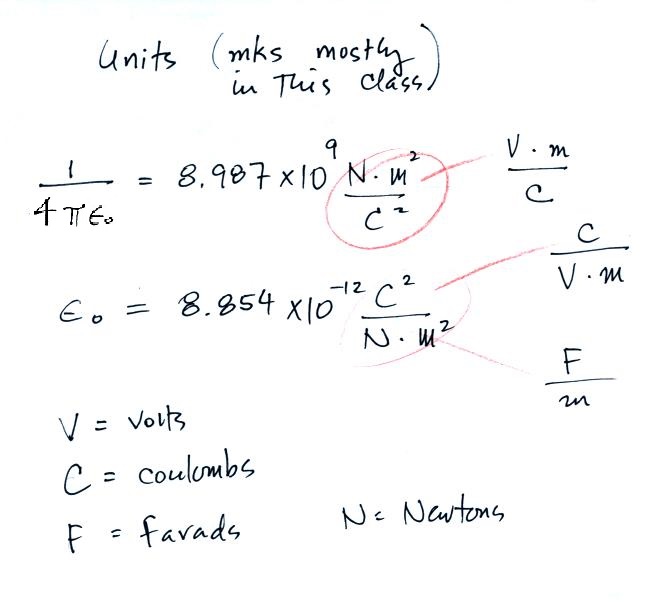 Units (mks mostly
in This class)
1/4πϵ₀ = 8.987 × 10⁹ N·m²/C² V·m/C
ϵ₀ = 8.854 × 10⁻¹² C²/N·m² C/V·m
F/m
V = volts
C = coulombs
F = farads N = Newtons